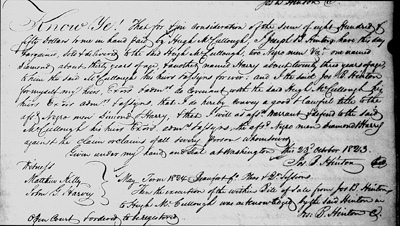 Jos B. Hinton
Know Ye! That for & in consideration of the sum of eight Hundred &
fifty Dollars to me in hand paid by Hugh McCullough, I Joseph B. Hinton have this day
bargained, sold & delivered to the said Hugh McCullough, two Negro men Viz: one named
Simond about thirty years of age, & another named Harry about twenty three years of age,
to him the said McCullough his heirs & assigns for ever: and I the said Jos B. Hinton
for myself, my heirs, Exors & adms do covenant, with the said Hugh McCullough his
heirs Exors adms & assigns, that I do hereby convey a good & lawful title to the
afsd Negro men Simond & Harry, & that I will & afsd warrant & defend to the said
McCullough his heirs Exors adms & assigns the afsd Negro men Simond & Harry
against the claim or claims of all & every person whatsoever
Given under my hand and seal at Washington The 23d October 1823.
Jos. B. Hinton
Witness
Matthew Kelly
John G. Harvey
May Term 1824 Beaufort
Then the execution of the within Bill of Sale from Jos B. Hinton
to Hugh McCullough was acknowledged by the said Hinton in
Open Court & ordered to be registered
Jos. B. Hinton